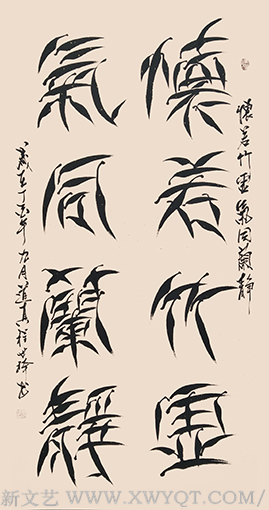 懷若竹虛
氣同蘭靜
懷若竹虛氣同蘭靜
歲在丁亥年九月道真程
新文艺 WWW.XWYQT.COM